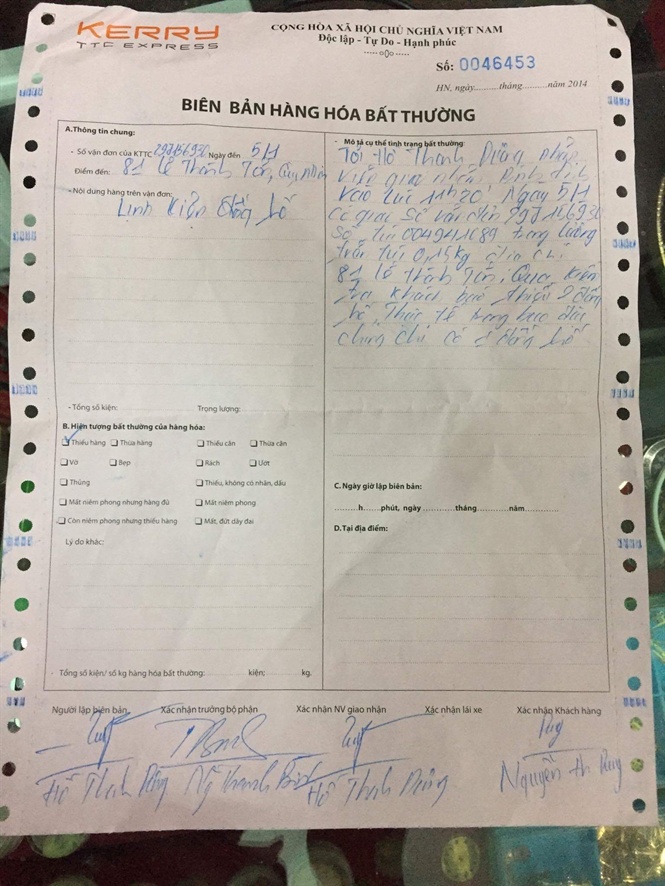 KERRY
TTC EXPRESS
CỘNG HÒA XÃ HỘI CHỦ NGHĨA VIỆT NAM
Độc lập - Tự Do - Hạnh phúc
-----o0o-----
Số: 0046453
HN, ngày..........tháng..........năm 2014
BIÊN BẢN HÀNG HÓA BẤT THƯỜNG
A.Thông tin chung:
- Số vận đơn của KTTC Ngày đến 5/1
Điểm đến: 81 Lê Thánh Tôn, Quy Nhơn
- Nội dung hàng trên vận đơn:
Linh kiện đồng hồ
- Tổng số kiện: Trọng lượng:
B. Hiện tượng bất thường của hàng hóa:
Thiếu hàng Thừa hàng Thiếu cân Thừa cân
Vỡ Bẹp Rách Ướt
Thủng Thiếu, không có nhãn, dấu
Mất niêm phong nhưng hàng đủ Mất niêm phong
Còn niêm phong nhưng thiếu hàng Mất, đứt dây đai
Lý do khác:
Tổng số kiện/ số kg hàng hóa bất thường: kiện; kg.
- Mô tả cụ thể tình trạng bất thường:
Tôi Hồ Thanh Dũng nhân
viên giao nhận Bình Định
Vào lúc 11h20' Ngày 5/1
có giao số vận đơn
số túi trọng lượng
trên túi 0,15kg địa chỉ
81 Lê Thánh Tôn, Qua kiểm
tra khách báo thiếu 2 đồng
hồ, Thực tế trong bao
chỉ có 1 đồng hồ
C. Ngày giờ lập biên bản:
.........h......phút, ngày ...........tháng...........năm............
D.Tại địa điểm:
Người lập biên bản Xác nhận trưởng bộ phận Xác nhận NV giao nhận Xác nhận lái xe Xác nhận Khách hàng
Hồ Thanh Dũng Hồ Thanh Dũng Nguyễn